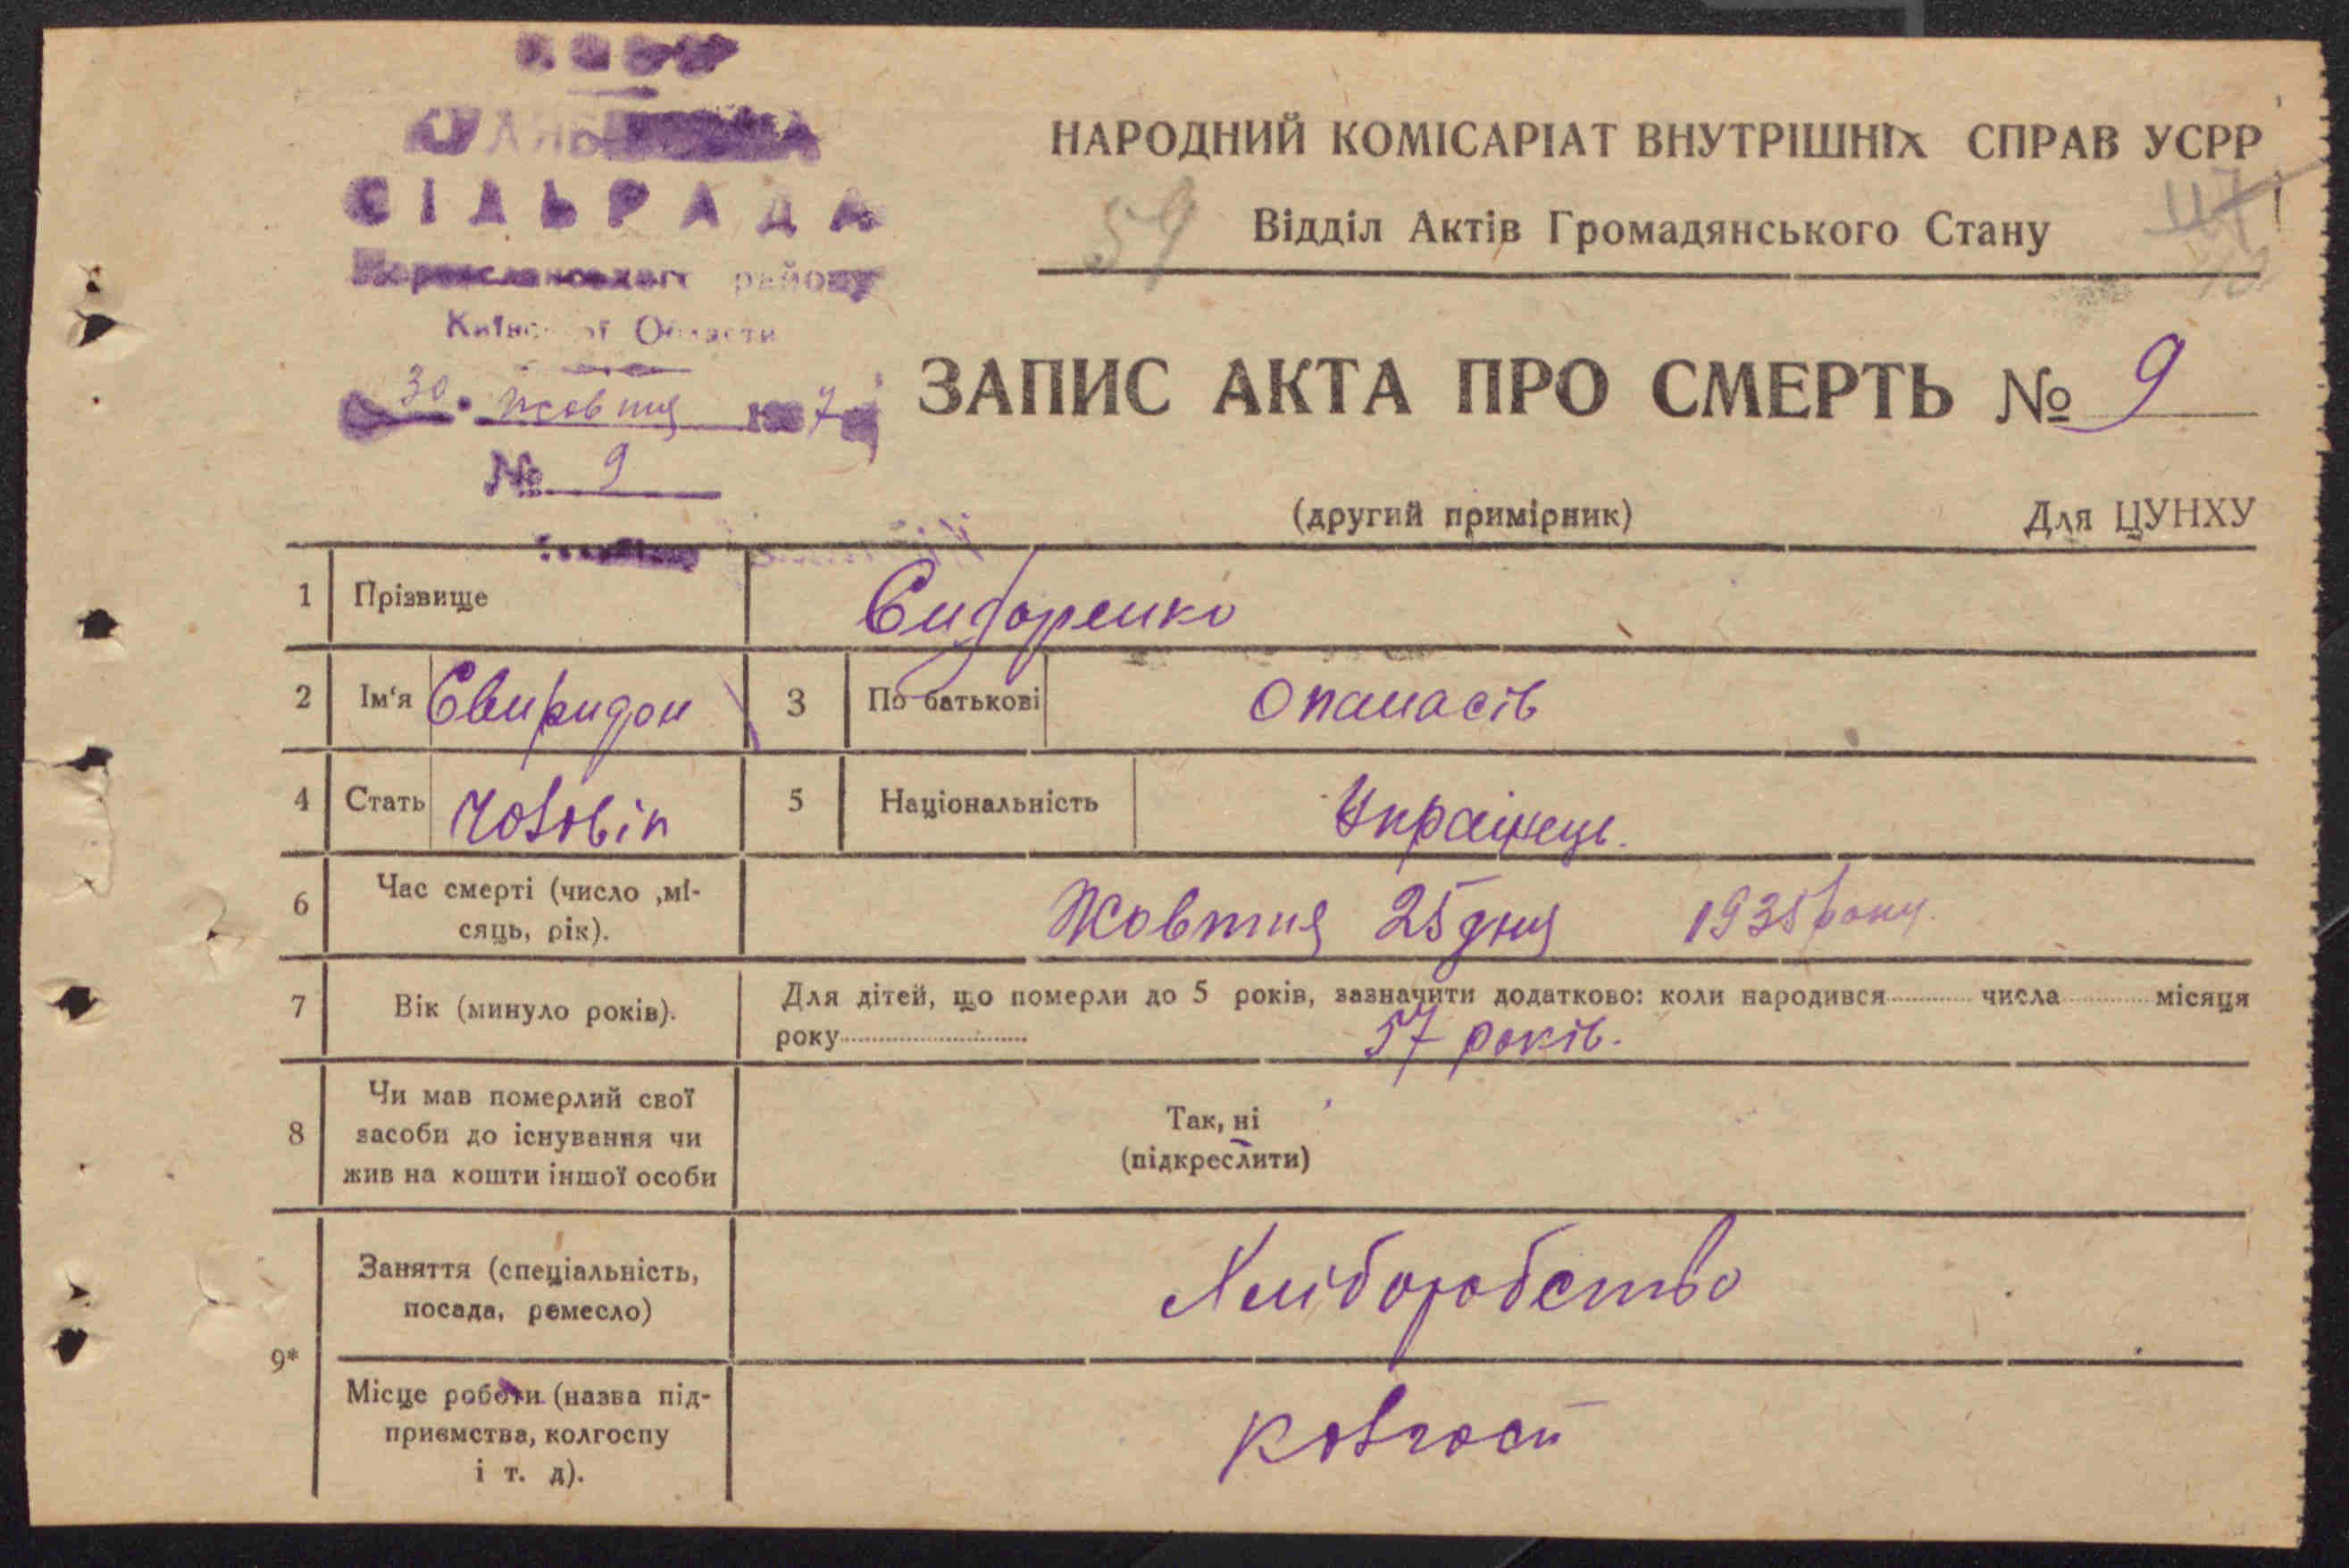 СІЛЬРАДА
району
Київської Области
30 жовтня 7
№ 9
НАРОДНИЙ КОМІСАРІАТ ВНУТРІШНІХ СПРАВ УСРР
59 Відділ Актів Громадянського Стану
ЗАПИС АКТА ПРО СМЕРТЬ № 9
(другий примірник) Для ЦУНХУ
1 Прізвище Сидоренко
2 Ім'я Свиридон 3 По батькові Опанасів
4 Стать Чоловік 5 Національність Українець.
6 Час смерті (число ,мі-
сяць, рік). Жовтня 25 дня 1935 року.
7 Вік (минуло років). Для дітей, що померли до 5 років, зазначити додатково: коли народився числа місяця
року 57 років.
8 Чи мав померлий свої
засоби до існування чи
жив на кошти іншої особи
Так, ні
(підкреслити)
9*
Заняття (спеціальність,
посада, ремесло) Хліборобство
Місце роботи (назва під-
приємства, колгоспу
і т. д). Колгосп